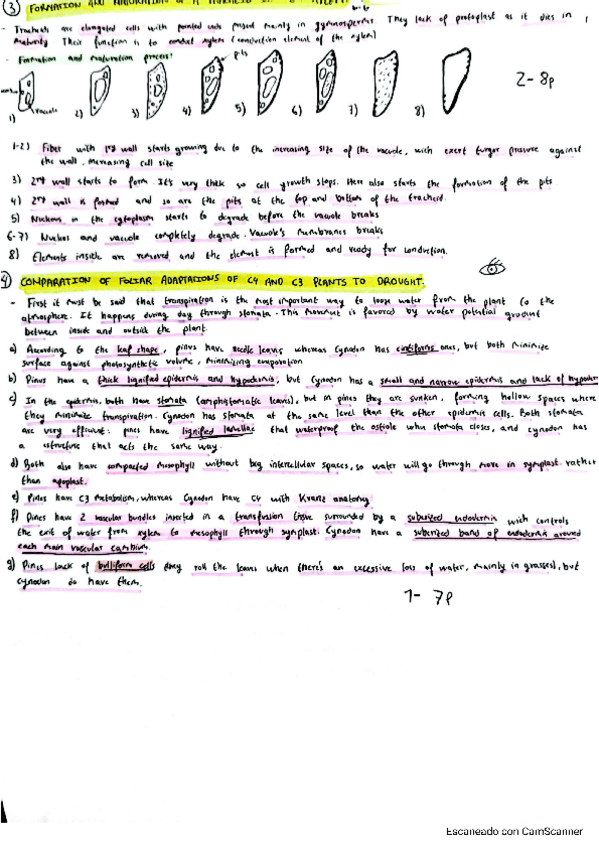 3 FORMATION AND MATURATION OF A TRACHEID
- Tracheids are elongated cells with pointed ends present mainly in gymnosperms. They lack of protoplast as it dies in
maturity. Their function is to conduct xylem (conduction element of the xylem)
- Formation and maturation process:
pits
vacuole
1) 2) 3) 4) 5) 6) 7) 8)
2-8p
1-2) Fiber with 1ry wall starts growing due to the increasing size of the vacuole, with exert turgor pressure against
the wall, increasing cell size
3) 2ry wall starts to form. It's very thick so cell growth stops. Here also starts the formation of the pits
4) 2ry wall is formed and so are the pits at the top and bottom of the tracheid.
5) Nucleus in the cytoplasm starts to degrade before the vacuole breaks
6-7) Nucleus and vacuole completely degrade. Vacuole's membranes breaks
8) Elements inside are removed, and the element is formed and ready for conduction.
4) COMPARATION OF FOLIAR ADAPTATIONS OF C4 AND C3 PLANTS TO DROUGHT.
- First it must be said that transpiration is the most important way to loose water from the plant to the
atmosphere. It happens during day through stomata. This movement is favored by water potential gradient
between inside and outside the plant.
a) According to the leaf shape, pinus have needle leaves whereas Cynodon has ones, but both minimize
surface against photosynthetic volume, minimizing evaporation
b) Pinus have a thick lignified epidermis and hypodermis, but Cynodon has a small and narrow epidermis and lack of hypoder
c) In the epidermis, both have stomata (amphistomatic leaves), but in pines they are sunken, forming hollow spaces where
they minimize transpiration. Cynodon has stomata at the same level than the other epidermis cells. Both stomata
are very efficient: pines have lignified lamellae that waterproof the ostiole when stomata closes, and cynodon has
a structure that acts the same way.
d) Both also have compacted mesophyll without big intercellular spaces, so water will go through more in symplast rather
than apoplast.
e) Pinus have C3 metabolism, whereas Cynodon have C4 with Kranz anatomy
f) Pines have 2 vascular bundles inserted in a transfusion tissue surrounded by a suberized endodermis with controls
the exit of water from xylem to mesophyll through symplast. Cynodon have a suberized band of endodermis around
each main vascular cambium.
g) Pines lack of bulliform cells (they roll the leaves when there's an excessive loss of water, mainly in grasses), but
cynodon do have them.
1- 7p
Escaneado con CamScanner